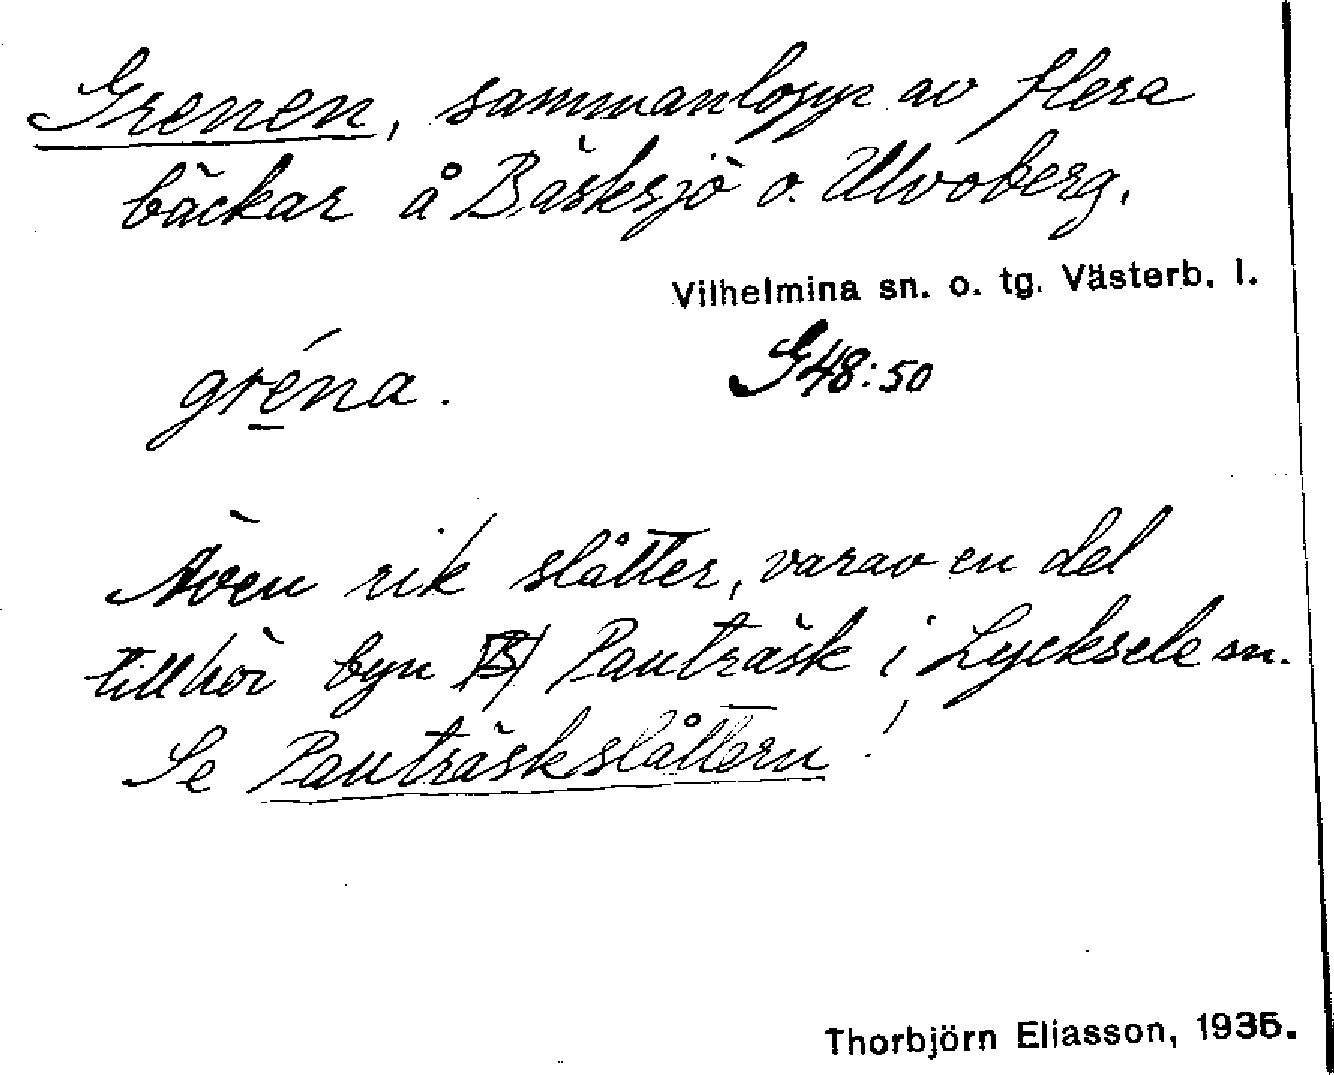 Grenen, sammanlopp av flera
bäckar å Bäsksjö o. Ulvoberg.
Vilhelmina sn. o. tg. Västerb. l.
gréna.
G48:50
Även rik slåtter, varav en del
tillhör byn Pauträsk i Lycksele sn.
Se Pauträskslåttern!
Thorbjörn Eliasson, 1935.